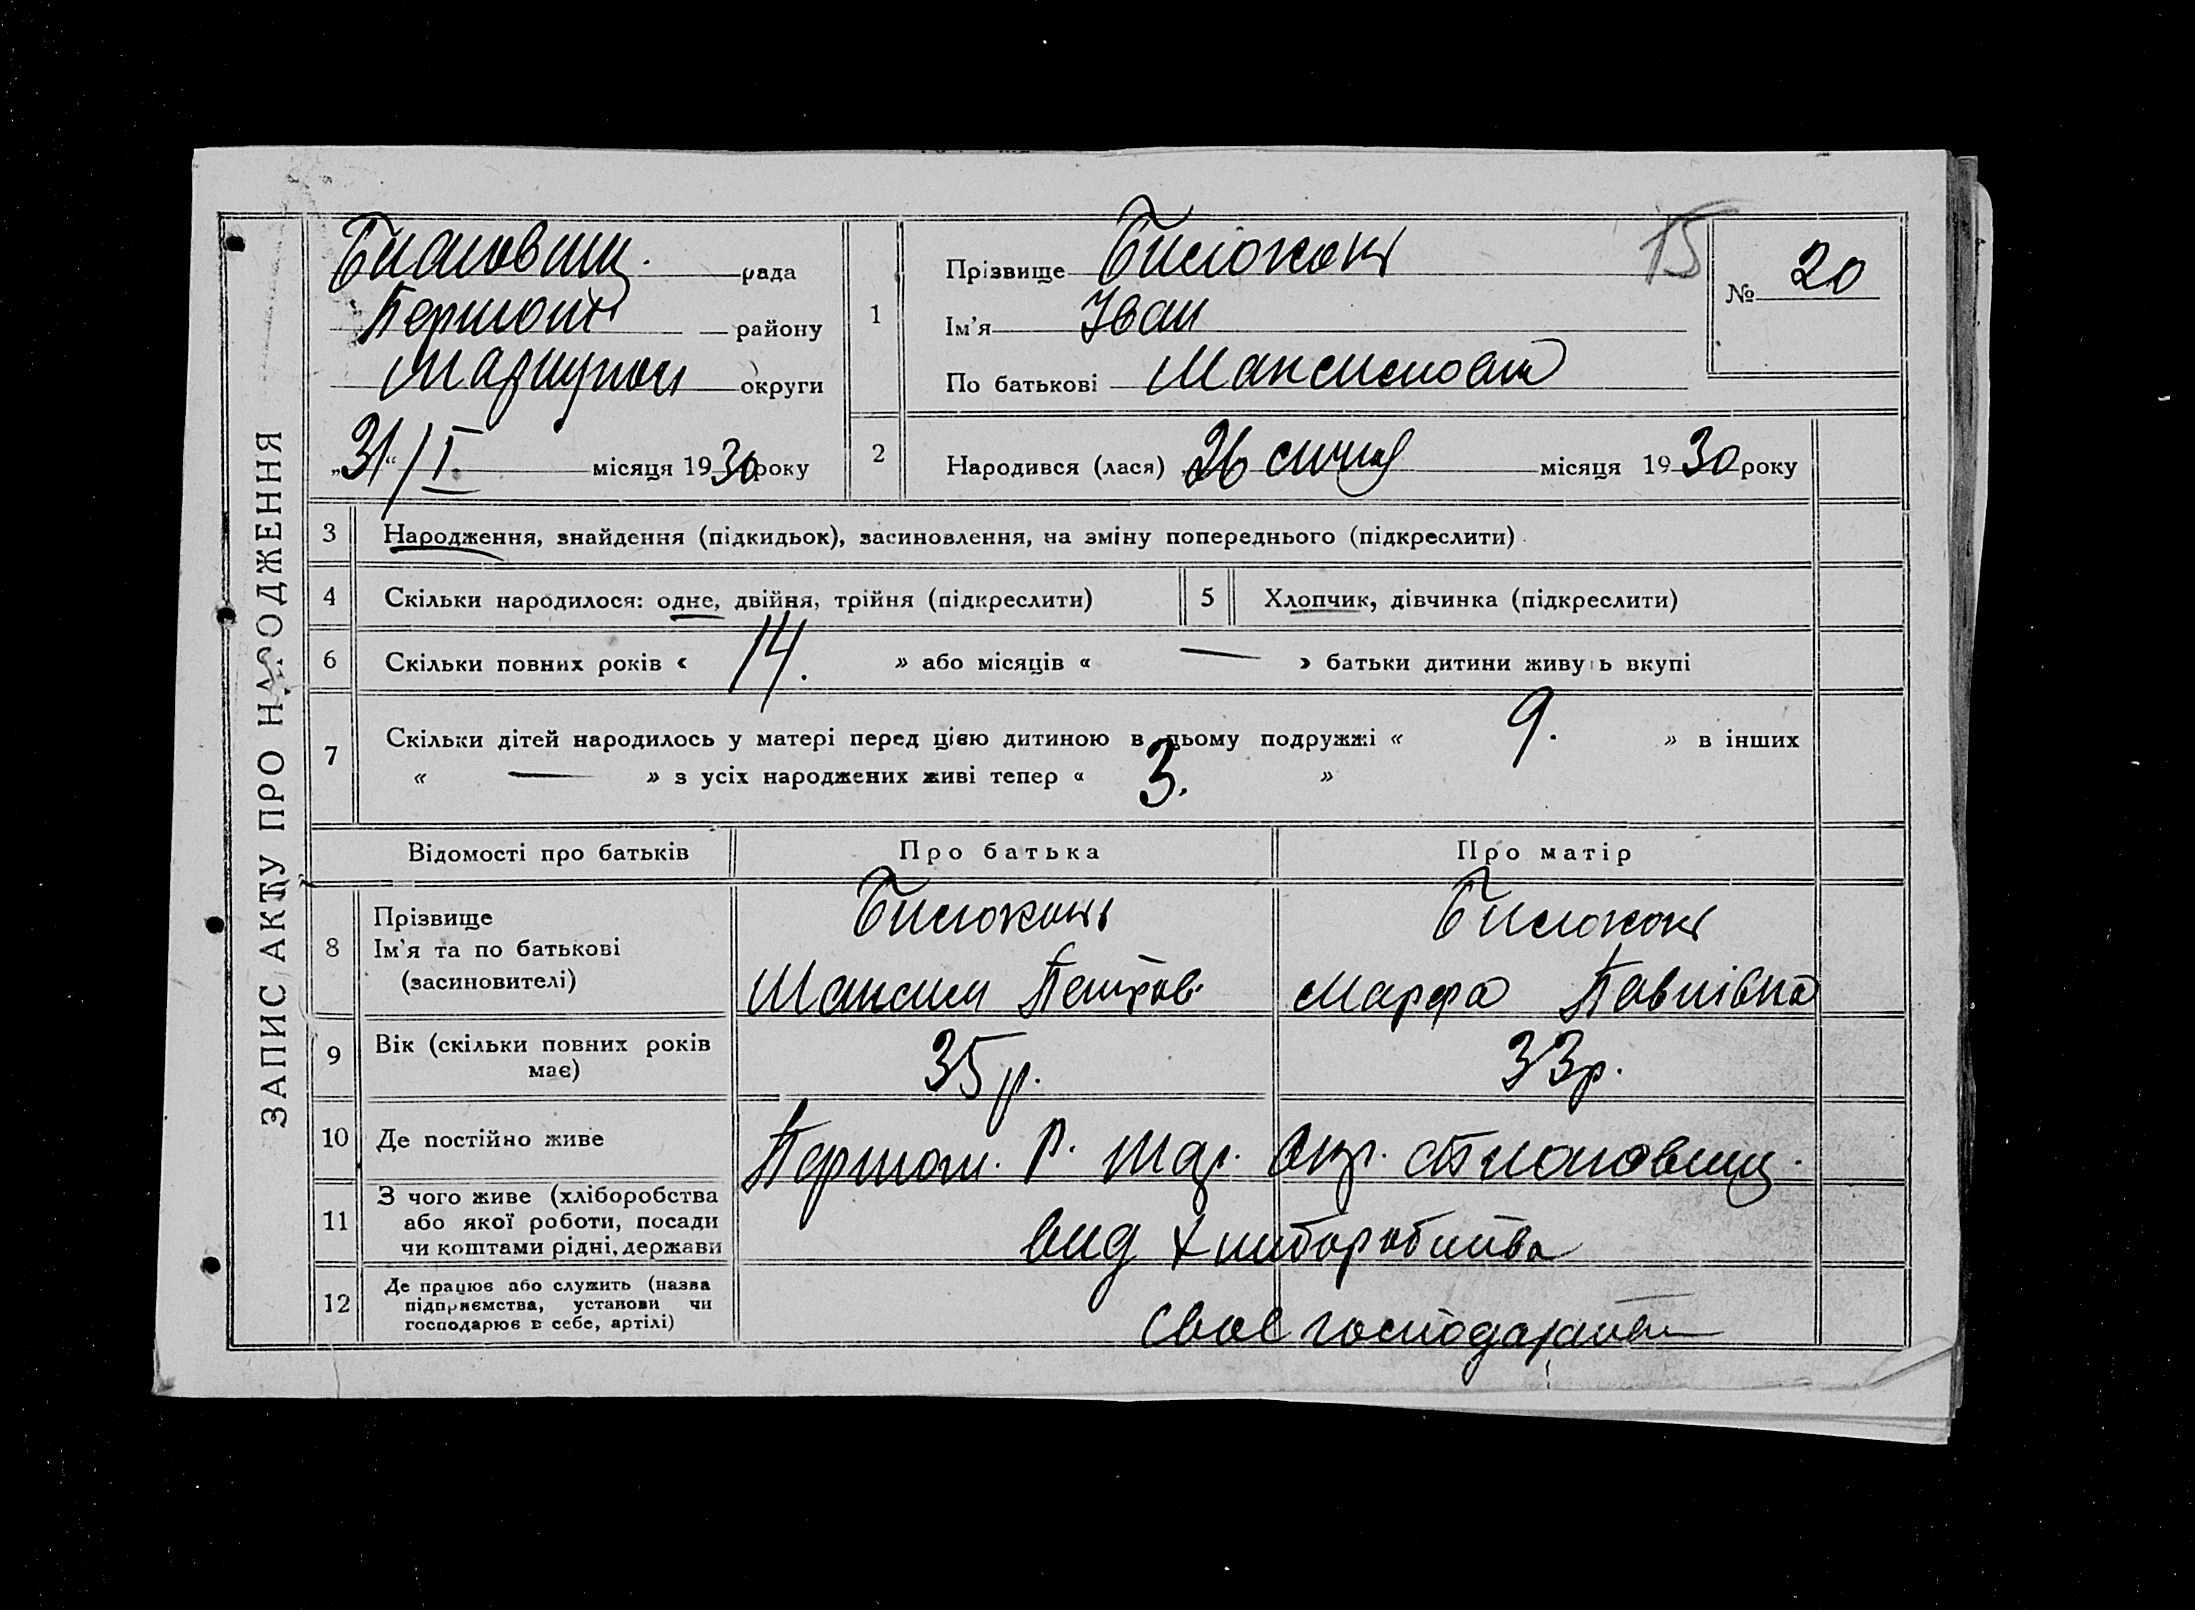 ЗАПИС АКТУ ПРО НАРОДЖЕННЯ
рада
району
округи
„31“ / I. місяця 1930 року
1
Прізвище Билоконь
Ім’я Іван
По батькові Максимович
15
№ 20
2
Народився (лася) 26 січня місяця 1930 року
3 Народження, знайдення (підкидьок), засиновлення, на зміну попереднього (підкреслити)
4 Скільки народилося: одне, двійня, трійня (підкреслити)
5 Хлопчик, дівчинка (підкреслити)
6 Скільки повних років « 14. » або місяців « — » батьки дитини живуть вкупі
7 Скільки дітей народилось у матері перед цією дитиною в цьому подружжі « 9. » в інших
« — » з усіх народжених живі тепер « 3. »
Відомості про батьків
Про батька
Про матір
8 Прізвище
Ім’я та по батькові
(засиновителі)
Билоконь
Максим Петров.
Билоконь
Марфа Павлівна
9 Вік (скільки повних років
має)
35 р.
33 р.
10 Де постійно живе
Першот. Р. Мар. Окр.
11 З чого живе (хліборобства
або якої роботи, посади
чи коштами рідні, держави
вид хлиборобства
12 Де працює або служить (назва
підприємства, установи чи
господарює в себе, артілі)
своє господарство